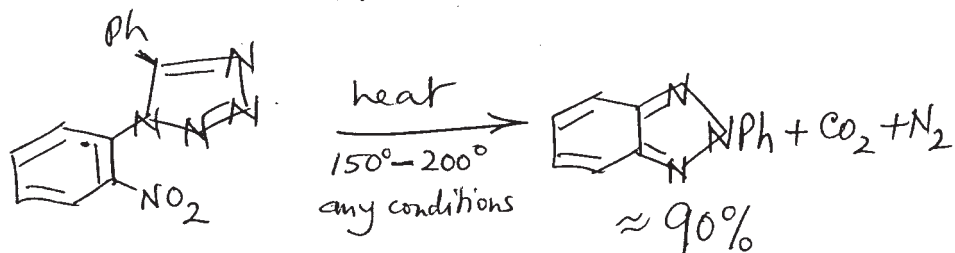 Ph
N
N
N
N
NO2
heat
150°–200°
any conditions
N
NPh + CO2 + N2
N
≈ 90%